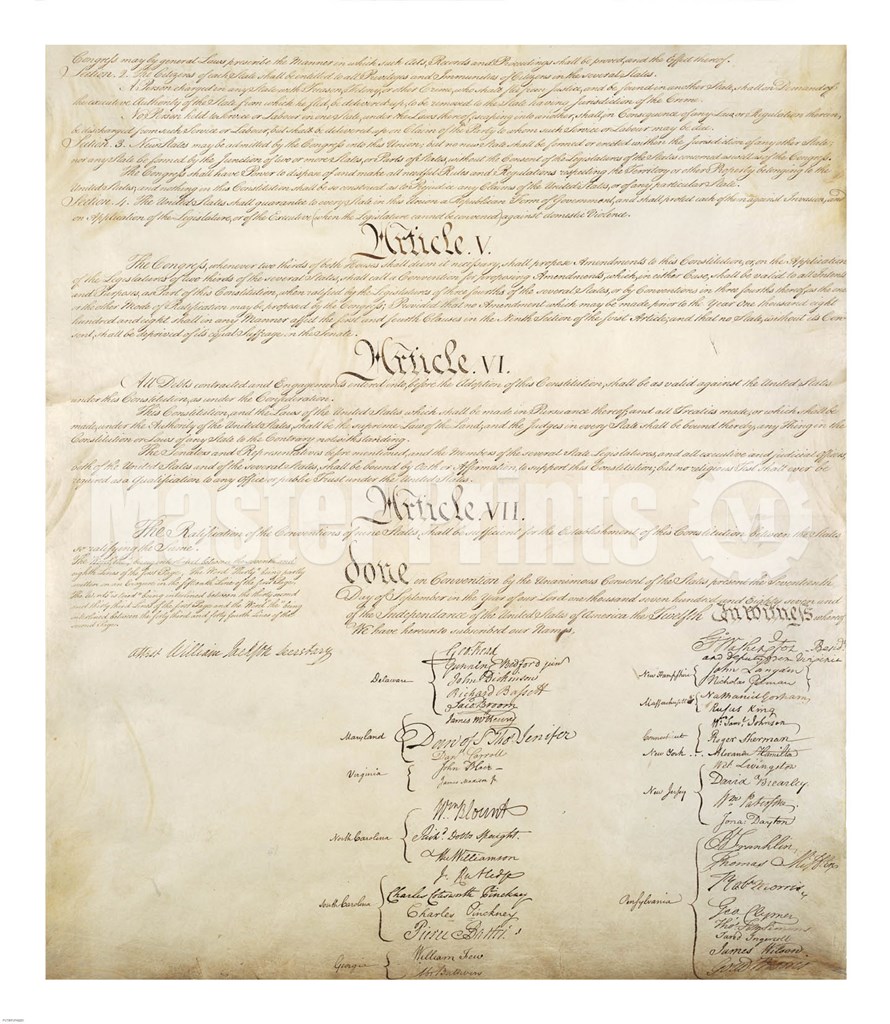 Congress may by general Laws prescribe the Manner in which such Acts, Records and Proceedings shall be proved, and the Effect thereof.
Section. 2. The Citizens of each State shall be entitled to all Privileges and Immunities of Citizens in the several States.
A Person charged in any State with Treason, Felony, or other Crime, who shall flee from Justice, and be found in another State, shall on Demand of
the executive Authority of the State from which he fled, be delivered up, to be removed to the State having Jurisdiction of the Crime.
No Person held to Service or Labour in one State, under the Laws thereof, escaping into another, shall, in Consequence of any Law or Regulation therein,
be discharged from such Service or Labour, but shall be delivered up on Claim of the Party to whom such Service or Labour may be due.
Section. 3. New States may be admitted by the Congress into this Union; but no new State shall be formed or erected within the Jurisdiction of any other State;
nor any State be formed by the Junction of two or more States, or Parts of States, without the Consent of the Legislatures of the States concerned as well as of the Congress.
The Congress shall have Power to dispose of and make all needful Rules and Regulations respecting the Territory or other Property belonging to the
United States; and nothing in this Constitution shall be so construed as to Prejudice any Claims of the United States, or of any particular State.
Section. 4. The United States shall guarantee to every State in this Union a Republican Form of Government, and shall protect each of them against Invasion; and
on Application of the Legislature, or of the Executive (when the Legislature cannot be convened) against domestic Violence.
Article. V.
The Congress, whenever two thirds of both Houses shall deem it necessary, shall propose Amendments to this Constitution, or, on the Application
of the Legislatures of two thirds of the several States, shall call a Convention for proposing Amendments, which, in either Case, shall be valid to all Intents
and Purposes, as Part of this Constitution, when ratified by the Legislatures of three fourths of the several States, or by Conventions in three fourths thereof, as the one
or the other Mode of Ratification may be proposed by the Congress; Provided that no Amendment which may be made prior to the Year One thousand eight
hundred and eight shall in any Manner affect the first and fourth Clauses in the Ninth Section of the first Article; and that no State, without its Con-
sent, shall be deprived of its equal Suffrage in the Senate.
Article. VI.
All Debts contracted and Engagements entered into, before the Adoption of this Constitution, shall be as valid against the United States
under this Constitution, as under the Confederation.
This Constitution, and the Laws of the United States which shall be made in Pursuance thereof; and all Treaties made, or which shall be
made, under the Authority of the United States, shall be the supreme Law of the Land; and the Judges in every State shall be bound thereby, any Thing in the
Constitution or Laws of any State to the Contrary notwithstanding.
The Senators and Representatives before mentioned, and the Members of the several State Legislatures, and all executive and judicial Officers,
both of the United States and of the several States, shall be bound by Oath or Affirmation, to support this Constitution; but no religious Test shall ever be
required as a Qualification to any Office or public Trust under the United States.
Article. VII.
Master Prints
The Ratification of the Conventions of nine States, shall be sufficient for the Establishment of this Constitution between the States
so ratifying the Same.
done in Convention by the Unanimous Consent of the States present the Seventeenth
Day of September in the Year of our Lord one thousand seven hundred and Eighty seven and
of the Independance of the United States of America the Twelfth In witness whereof
We have hereunto subscribed our Names,
Attest William Jackson Secretary
Delaware
Geo: Read
Gunning Bedford jun
John Dickinson
Richard Bassett
Jaco: Broom
Maryland
James McHenry
Dan of St Thos Jenifer
Danl Carroll
Virginia
John Blair —
James Madison Jr
North Carolina
Wm Blount
Richd. Dobbs Spaight.
Hu Williamson
South Carolina
J. Rutledge
Charles Cotesworth Pinckney
Charles Pinckney
Pierce Butler
Georgia
William Few
Abr Baldwin
Go. Washington - Presidt
and deputy from Virginia
New Hampshire
John Langdon
Nicholas Gilman
Massachusetts
Nathaniel Gorham
Rufus King
Connecticut
Wm. Saml. Johnson
Roger Sherman
New York
Alexander Hamilton
New Jersey
Wil: Livingston
David Brearley
Wm Paterson
Jona: Dayton
Pensylvania
B Franklin
Thomas Mifflin
Robt Morris
Geo. Clymer
Thos. FitzSimons
Jared Ingersoll
James Wilson
Gouv Morris